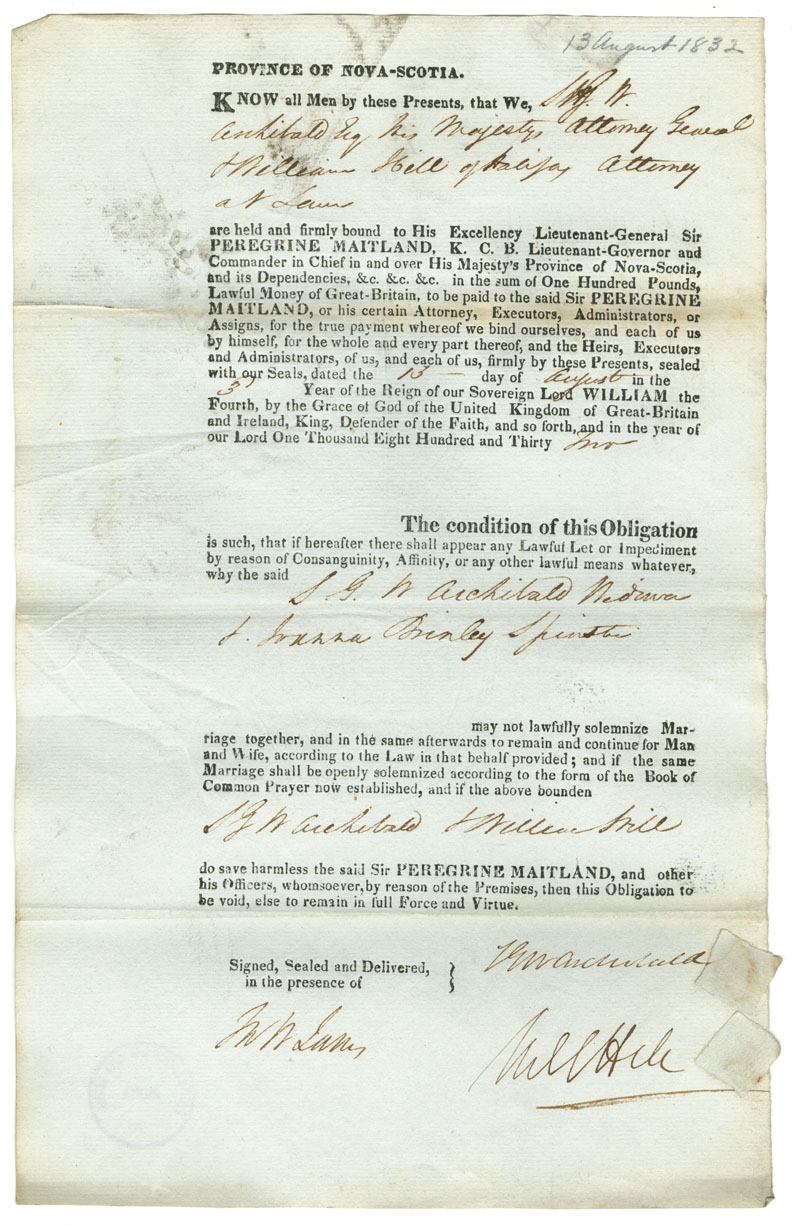 13 August 1832
PROVINCE OF NOVA-SCOTIA.
KNOW all Men by these Presents, that We, S. G. W.
Archibald Esq His Majestys Attorney General
& William Hill of Halifax Attorney
at Law
are held and firmly bound to His Excellency Lieutenant-General Sir
PEREGRINE MAITLAND, K. C. B. Lieutenant-Governor and
Commander in Chief in and over His Majesty's Province of Nova-Scotia,
and its Dependencies, &c. &c. &c. in the sum of One Hundred Pounds,
Lawful Money of Great-Britain, to be paid to the said Sir PEREGRINE
MAITLAND, or his certain Attorney, Executors, Administrators, or
Assigns, for the true payment whereof we bind ourselves, and each of us
by himself, for the whole and every part thereof, and the Heirs, Executors
and Administrators, of us, and each of us, firmly by these Presents, sealed
with our Seals, dated the 13 — day of August in the
3d Year of the Reign of our Sovereign Lord WILLIAM the
Fourth, by the Grace of God of the United Kingdom of Great-Britain
and Ireland, King, Defender of the Faith, and so forth, and in the year of
our Lord One Thousand Eight Hundred and Thirty Two
The condition of this Obligation
is such, that if hereafter there shall appear any Lawful Let or Impediment
by reason of Consanguinity, Affinity, or any other lawful means whatever,
why the said
S G W Archibald Widower
& Joanna Brinley Spinster
may not lawfully solemnize Mar-
riage together, and in the same afterwards to remain and continue for Man
and Wife, according to the Law in that behalf provided; and if the same
Marriage shall be openly solemnized according to the form of the Book of
Common Prayer now established, and if the above bounden
S G W Archibald & William Hill
do save harmless the said Sir PEREGRINE MAITLAND, and other
his Officers, whomsoever, by reason of the Premises, then this Obligation to
be void, else to remain in full Force and Virtue.
Signed, Sealed and Delivered, }
in the presence of
S G W Archibald
Will Hill